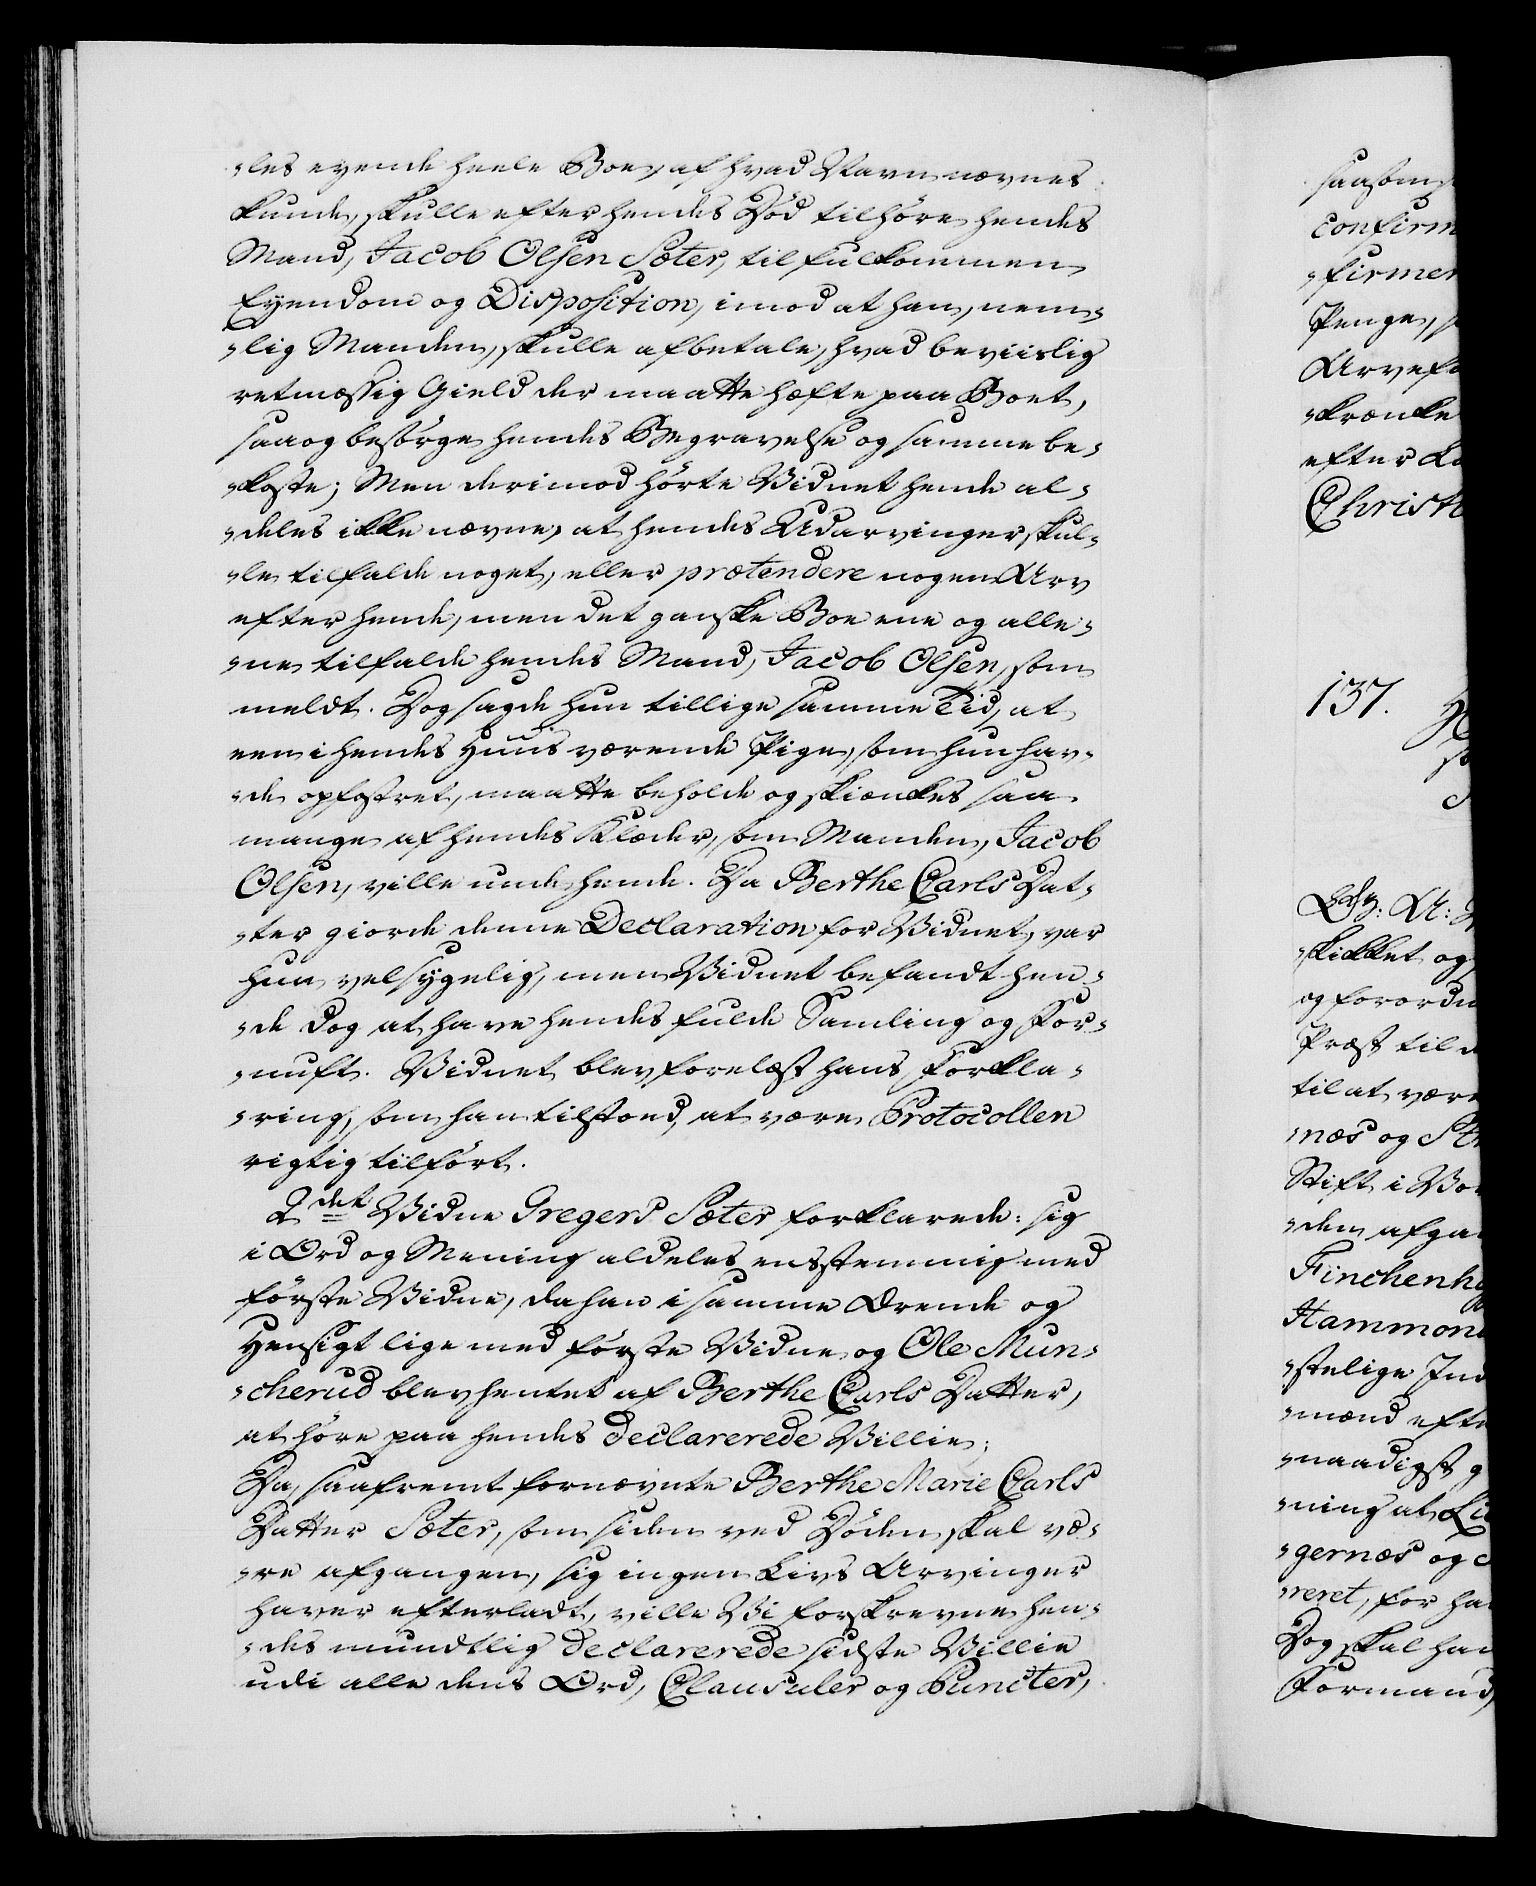 -les eyende heele Boe, af hvad Navn nævnes
kunde, skulle efter hendes Død tilhøre hendes
Mand, Jacob Olsen Sæter, til fulkommen
Eyendom og Disposition, imod at han, nem-
-lig Manden, skulle afbetale, hvad beviislig
retmæssig Gield der maatte hæfte paa Boet,
saa og besørge hendes Begravelse og samme be-
-koste; Men derimod hørte Vidnet hende al-
-deles ikke nævne, at hendes Udarvinger skul-
-le tilfalde noget, eller prætendere nogen Arv
efter hende, men det ganske Boe ene og alle-
-ne tilfalde hendes Mand, Jacob Olsen, som
meldt. Dog sagde hun tillige samme Tid, at
een i hendes Huus værende Pige, som hun hav-
-de opfostret, maatte beholde og skienkes saa
mange af hendes Klæder, som Manden, Jacob
Olsen, ville unde hende. Da Berthe Carls Dat-
-ter giorde denne Declaration for Vidnet, var
hun vel sygelig, men Vidnet befandt hen-
-de dog at have hendes fulde Samling og For-
-nuft. Vidnet blev forelæst hans Forkla-
-ring, som han tilstoed, at være Protocollen
rigtig tilført.
2det Vidne Gregers Sæter forklarede: sig
i Ord og Mening aldeles eensstemmig med
første Vidne, da han i samme Ærende og
Hensigt lige med første Vidne og Ole Mun-
-cherud blev hentet af Berthe Carls Datter,
at høre paa hendes declarerede Villie;
Da, saafremt fornævnte Berthe Marie Carls
Datter Sæter, som siden ved Døden skal væ-
-re afgangen, sig ingen Livs Arvinger
haver efterladt, ville Vi forskrevne hen-
-des mundtlig declarerede sidste Villie
udi alle dens Ord, Clausuler og Puncter,
saasom
confirm
-firmer
Penge, s
Arvefo
-krænke
efter La
Christ
137.
skikket og
og forordn
Præst til
til at være
-næs og
Stift i
-den afga
Finckenh
Hammon
-stelige Ind
-mænd efte
-naadigst g
-ning at
-gernæs og
-veret, for ha
Dog skal han
Formand,